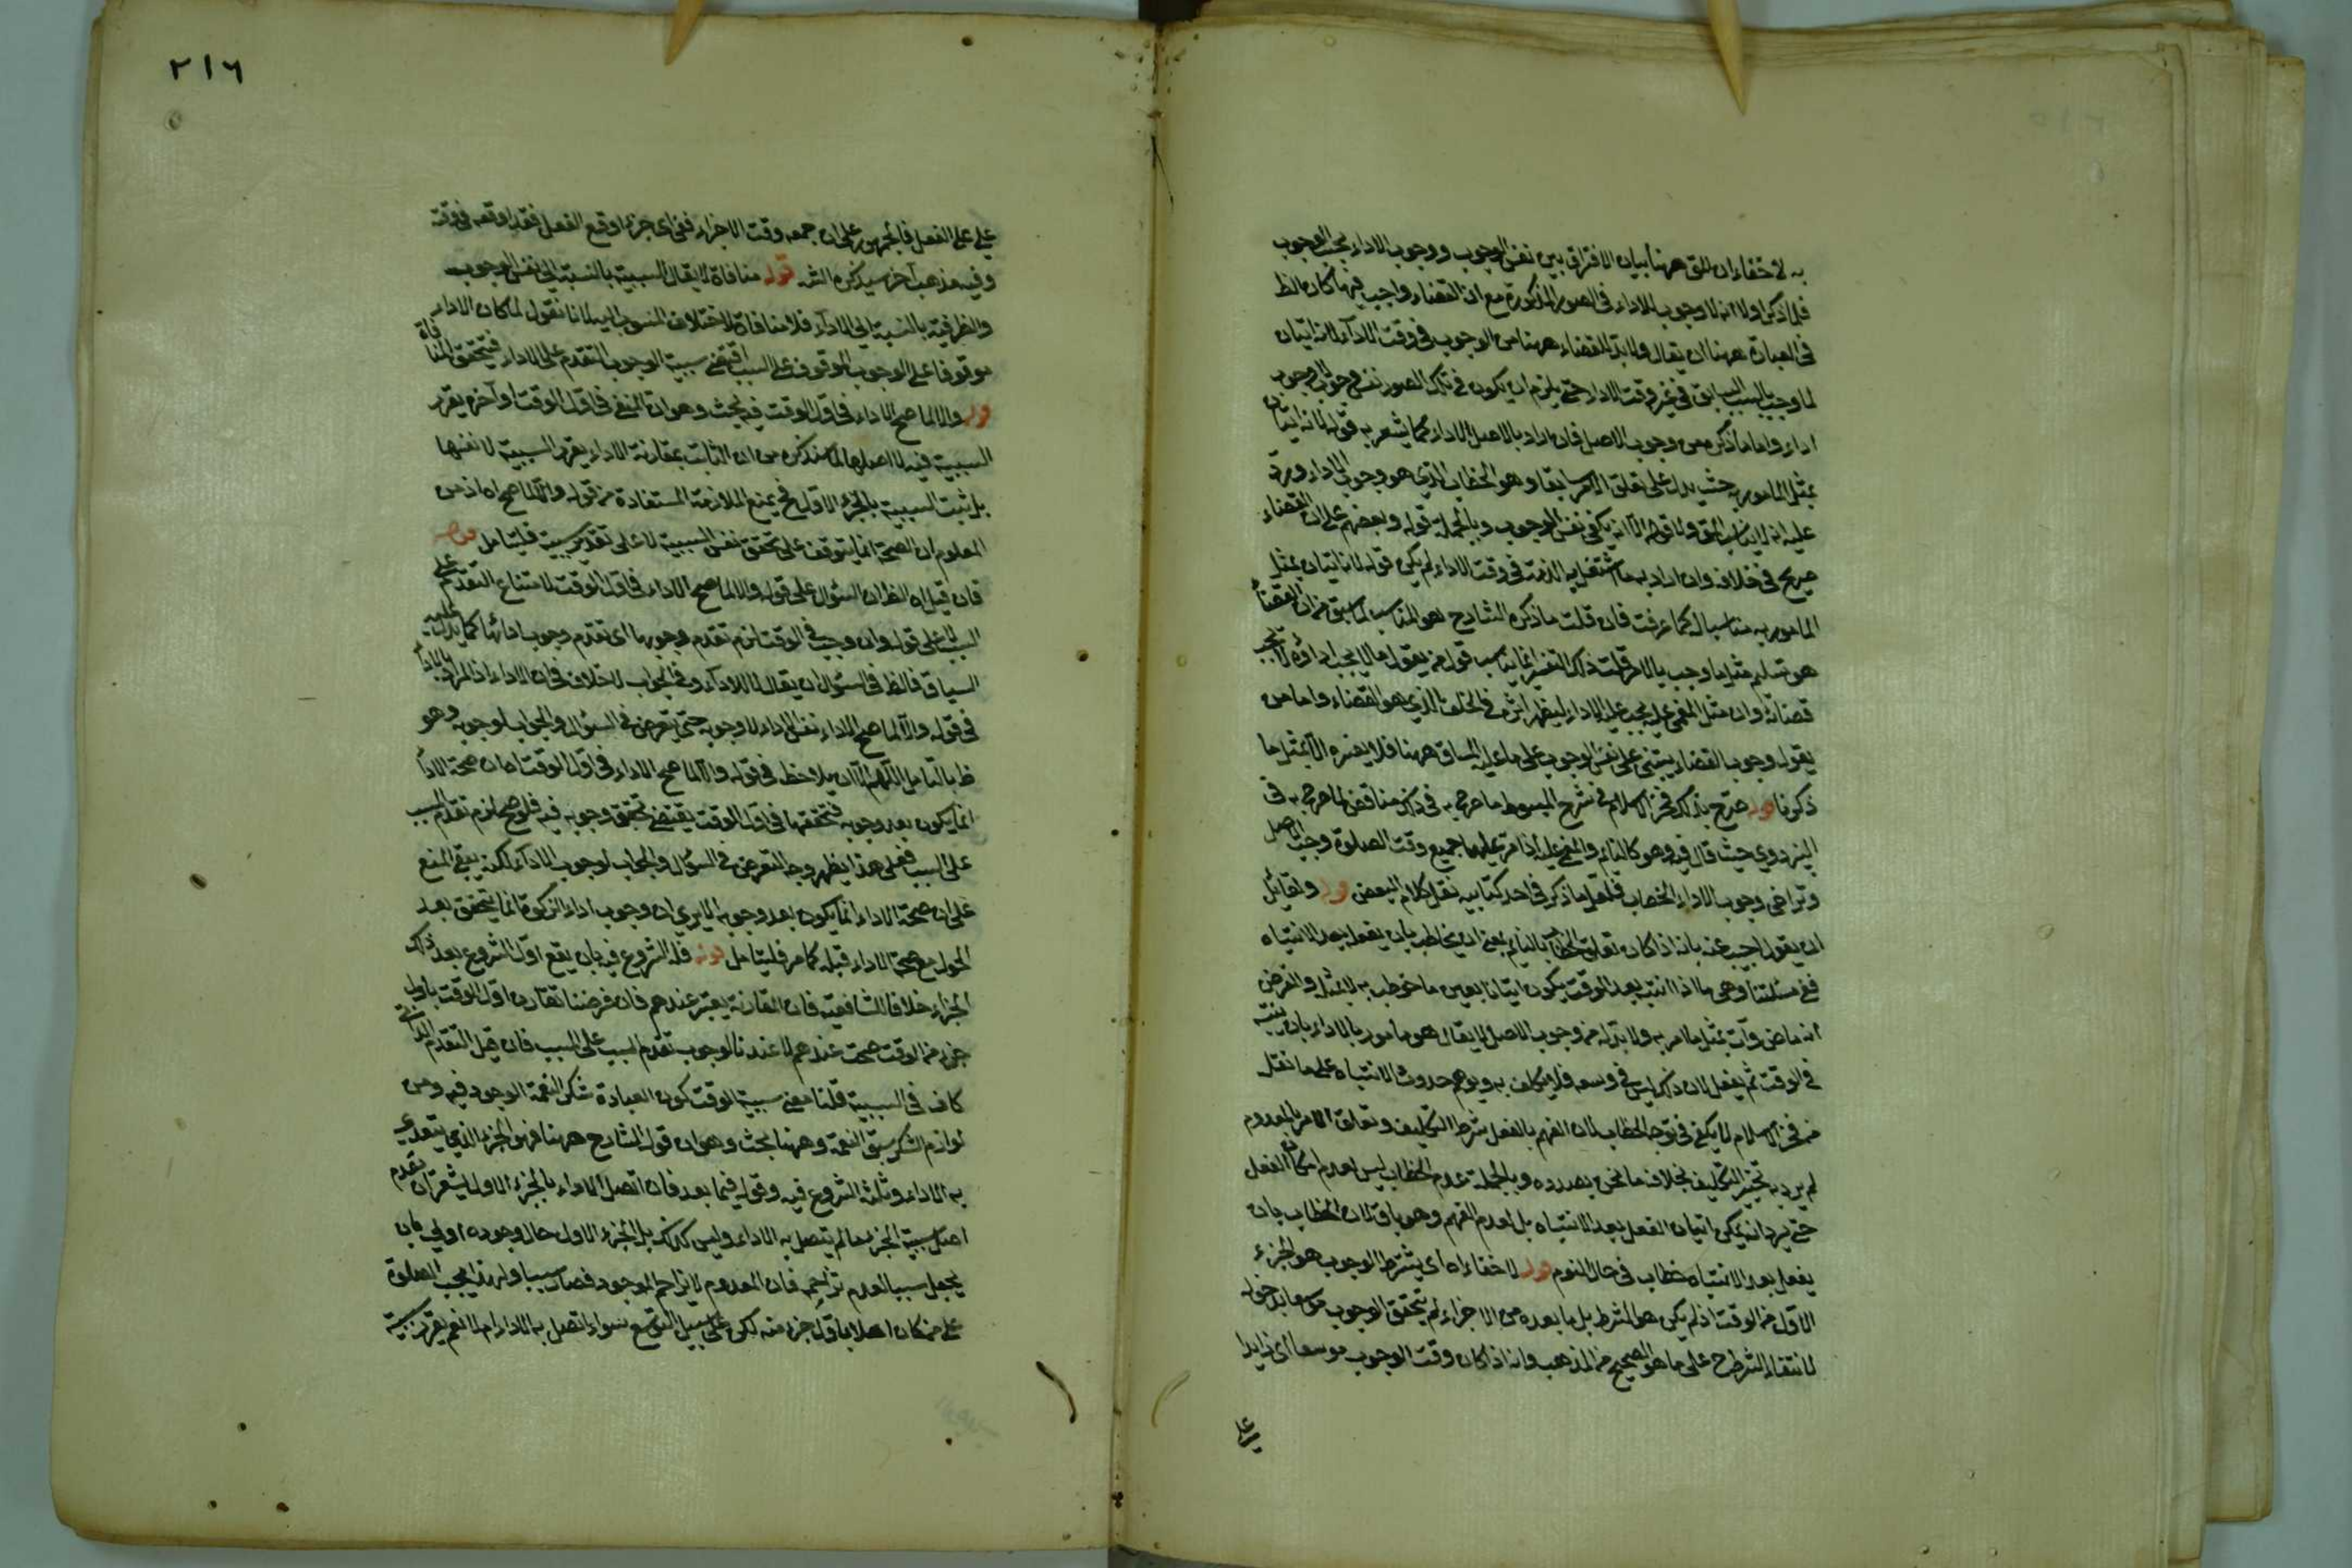 به لا خفاء ان اللايق ههنا بيان الافتراق بين نفس الوجوب ووجوب الاداء بحسب الوجوب
فلما ذكر اولا انه لا وجوب للاداء فى الصور المذكورة مع ان القضاء واجب فيها كان الظ
فى العبارة ههنا ان يقال ولا بد للقضاء ههنا من الوجوب فى وقت الاداء لانه اتيان
لما وجب بالسبب السابق فى غير وقت الاداء حتى يلزم ان يكون فى تلك الصور نفس وجوب لا وجوب
اداء واما ما ذكره من وجوب الاصل فان اراد بالاصل الاداء كما يشعر به قوله لانه اتيان
بمثل المامور به حيث يدل على تعلق الامر سابقا وهو الخطاب الذى هو وجوب الاداء ويرد
عليه انه لا يناسب وبالجملة قوله وبعضهم على ان القضاء
صريح فى خلافه وان اراد به ما اشتغل به الذمة فى وقت الاداء لم يكن قوله لانه اتيان بمثل
المامور به مناسبا له كما عرفت فان قلت ما ذكره الشارح هو المناسب لما سبق من ان القضاء
هو تسليم مثل ما وجب بالامر قلت ذلك التفسير انما يناسب قول من يقول ما لا يجب اداؤه لا يجب
قضاؤه وان مثل المغمى عليه يجب عليه الاداء ليظهر اثره فى الخلف الذى هو القضاء واما من
يقول وجوب القضاء يبتنى على نفس الوجوب على ما عليه المساق ههنا فلا يفسره الا بمثل ما
ذكرنا قوله صرح بذلك فخر الاسلام فى شرح المبسوط ما صرح به فى ذلك مناقض لما صرح به فى
البزدوى حيث قال فيه وهو كالنائم والمغمى عليه اذا مر عليهما جميع وقت الصلوة وجب الاصل
وتراخى وجوب الاداء والخطاب فلعل ما ذكر فى احد كتابيه نقل كلام البعض قوله ولقائل
ان يقول اجيب عنه بانه اذا كان تعلق الخطاب بالنائم بمعنى ان يخاطب بان يفعل بعد الانتباه
ففى مسئلتنا وهى ما اذا انتبه بعد الوقت يكون اتيانا بعين ما خوطب به لا بمثله والفرض
انه ماض وآت بمثل ما امر به ولا بد له من وجوب الاصل لا يقال هو مأمور بالاداء بان ينتبه
فى الوقت ثم يفعل لان ذلك ليس فى وسعه فلا يكلف به وتوهم حدوث الانتباه على ما نقل
من فخر الاسلام لا يكفى فى توجه الخطاب لان الفهم بالفعل شرط التكليف وتعلق الامر بالمعدوم
لم يرد به تنجيز التكليف بخلاف ما نحن بصدده وبالجملة عدم الخطاب ليس لعدم امكان الفعل
حتى يرد انه يمكن اتيان الفعل بعد الانتباه بل لعدم الفهم وهو باق لان الخطاب بان
يفعل بعد الانتباه خطاب فى حال النوم قوله لا خفاء اه اى يشترط الوجوب هو الجزء
الاول من الوقت اذ لم يكن هو الشرط بل ما بعده من الاجزاء لم يتحقق الوجوب موسعا بدخوله
لانتفاء الشرط ح على ما هو الصحيح من المذهب وانه اذا كان وقت الوجوب موسعا اى زايدا
٢١٦
على الفعل فالجمهور على ان جميعه وقت الاجزاء ففى اى جزء اوقع الفعل فقد اوقعه فى وقته
وفيه مذهب آخر سيذكره الش قوله منافاة لا يقال السببية بالنسبة الى نفس الوجوب
والظرفية بالنسبة الى الاداء فلا منافاة لاختلاف المنسوب اليه لانا نقول لما كان الاداء
موقوفا على الوجوب الموقوف على السبب اقتضى سببية الوجوب التقدم على الاداء فيتحقق المنافاة
قوله والا لما صح الاداء فى اول الوقت فيه بحث وهو ان المنفى فى اول الوقت او آخره تقرر
السببية فيه لا اصلها لما سنذكره من ان الثابت بمقارنة الاداء تقرر السببية لا نفسها
بل ثبتت السببية بالجزء الاول فح يمنع الملازمة المستفادة من قوله والا لما صح اه اذ من
المعلوم ان الصحة انما يتوقف على تحقق نفس السببية لا على تقدير سببيته فليتامل قوله
فان قيل اه الظ ان السؤال على قوله والا لما صح الاداء فى اول الوقت لامتناع التقدم على
السبب لا على قوله وان وجب فى الوقت لزم تقدم وجوبها اى تقدم وجوب ادائها كما يدل عليه
السياق فالظ فى السؤال ان يقال لا اداء وفى الجواب لا خلاف فى ان الاداء اذ المراد بالاداء
فى قوله والا لما صح الاداء نفس الاداء لا وجوبه حتى يتعرض فى السؤال والجواب لوجوبه وهو
ظ بالتامل اللهم الا ان يلاحظ فى قوله والا لما صح الاداء فى اول الوقت اه ان صحة الاداء
انما يكون بعد وجوبه فتحققها فى اول الوقت يقتضى تحقق وجوبه فيه فلو صح لزم تقدم المسبب
على السبب فعلى هذا يظهر وجه التعرض فى السؤال والجواب لوجوب الاداء لكن يبقى المنع
على ان صحة الاداء انما يكون بعد وجوبه الا يرى ان وجوب اداء الزكوة انما يتحقق بعد
الحول مع صحة الاداء قبله كما مر فليتامل قوله فله الشروع فيه بان يقع اول الشروع بعد ذلك
الجزء خلافا للشافعية فان المقارنة يعتبر عندهم فان فرضنا تقارن اول الوقت باول
جزء من الوقت صحت عندهم لا عندنا لوجوب تقدم السبب على المسبب فان قيل التقدم الذاتى
كاف فى السببية قلنا معنى سببية الوقت كون العبادة شكر النعمة الوجود فيه ومن
لوازم الشكر سبق النعمة وههنا بحث وهو ان قول الشارح ههنا فهو الجزء الذى يتعدى
به الاداء وثلثة الشروع فيه وقوله فيما بعد فان اتصل الاداء بالجزء الاول يشعر ان تقدم
اصل سببية الجزء ما لم يتصل به الاداء وليس كذلك بل الجزء الاول حال وجوده اولى بان
يجعل سببا لعدم تزاحمه فان المعدوم لا يزاحم الموجود فصار سببا ولهذا يجب الصلوة
على من كان اهلا باول جزء منه لكن على سبيل التوسع سواء اتصل به الاداء ام لا نعم تقرر سببيته